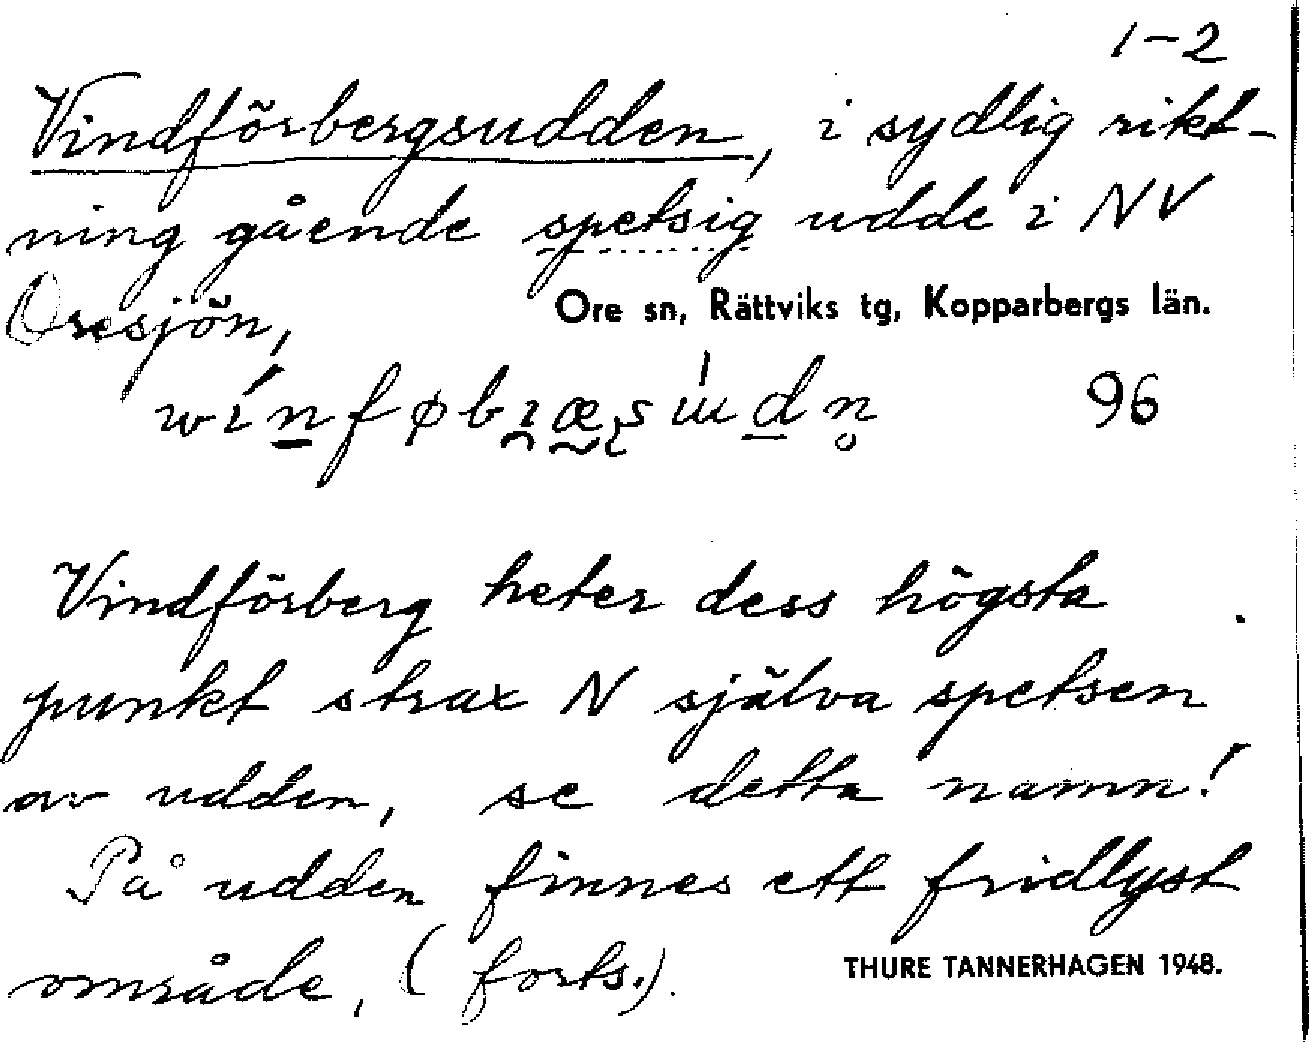 1-2
Vindförbergsudden, i sydlig rikt-
ning gående spetsig udde i NV
Oresjön,
Ore sn, Rättviks tg, Kopparbergs län.
96
Vindförberg heter dess högsta
punkt strax N själva spetsen
av udden, se detta namn!
På udden finnes ett fridlyst
område, (forts.).
THURE TANNERHAGEN 1948.